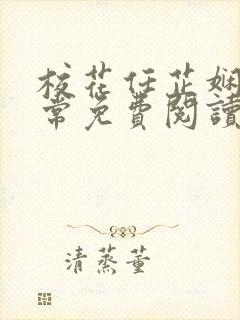 校花任芷娴
常免費閱讀
清蒸董